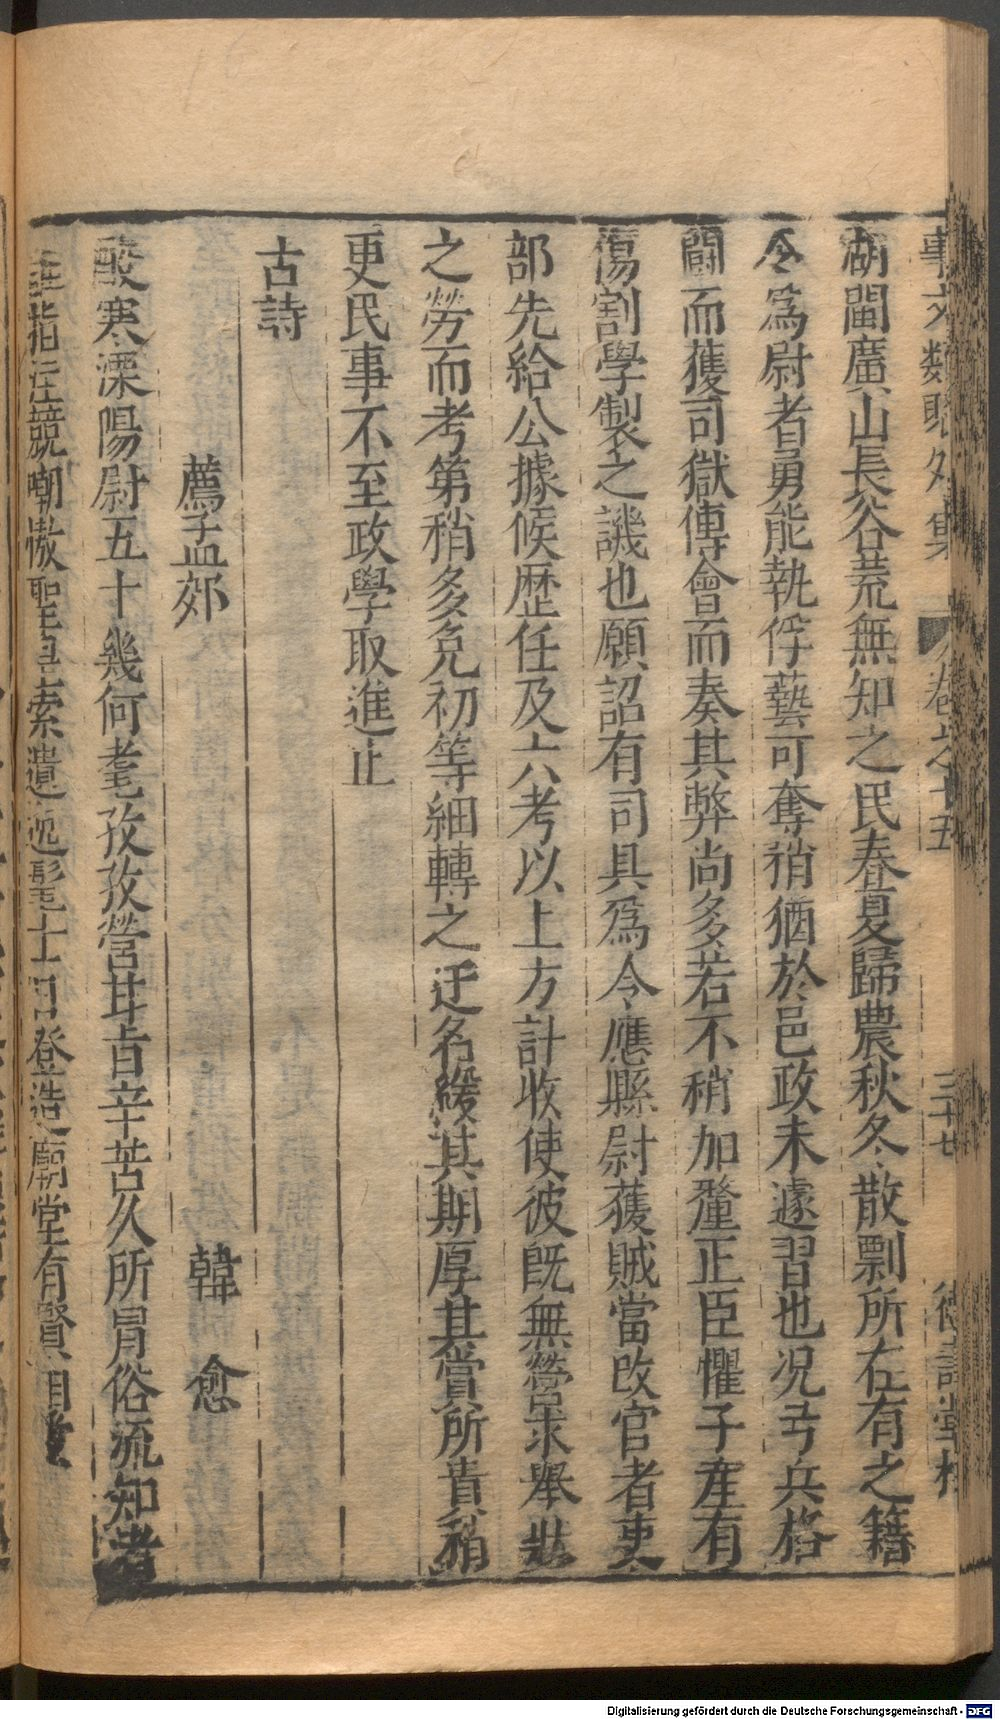 事文類聚外集 卷之十五 三十七 德壽堂梓
湖閩廣山長谷荒無知之民春夏歸農秋冬散剽所在有之籍
令為尉者勇能執俘藝可奪矟猶於邑政未遽習也况弓兵格
鬭而獲司獄傅會而奏其弊尚多若不稍加釐正臣懼子產有
傷割學製之譏也願詔有司具為令應縣尉獲賊當改官者吏
部先給公據候歷任及六考以上方計收使彼既無營求舉狀
之勞而考第稍多免初等細轉之迂名緩其期厚其賞所責稍
更民事不至政學取進止
古詩
薦孟郊 韓愈
酸寒溧陽尉五十幾何耄孜孜營甘旨辛苦久所冒俗流知者
誰指注競嘲慠聖皇索遺逸髦士日登造廟堂有賢相愛
Digitalisierung gefördert durch die Deutsche Forschungsgemeinschaft - DFG